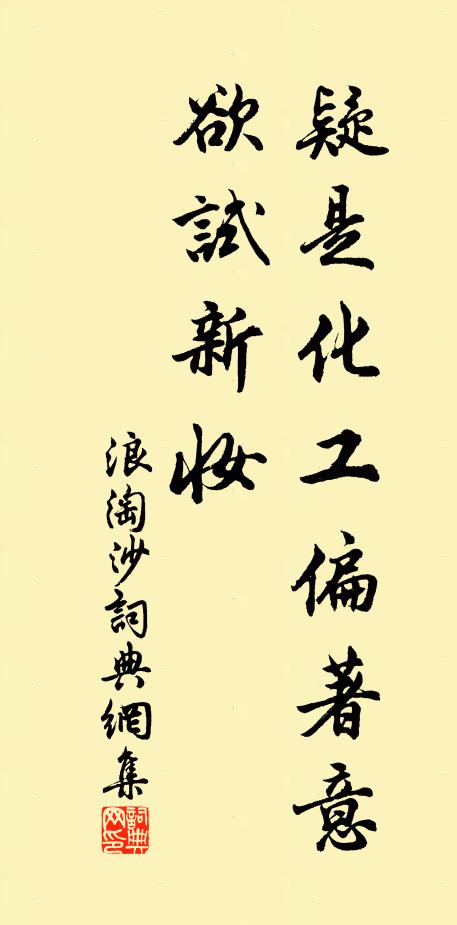 疑是化工偏著意
欲試新妝
浪淘沙詞典網集
詞典
网印